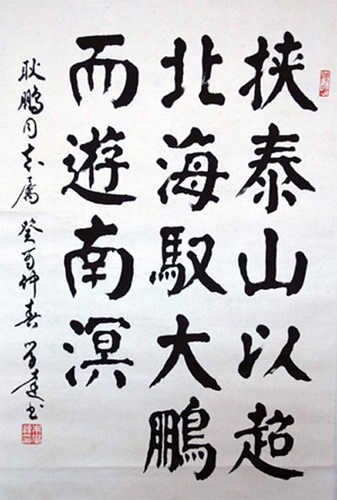 挟泰山以超
北海馭大鵬
而遊南溟
耿鵬同志属 癸酉仲春 书